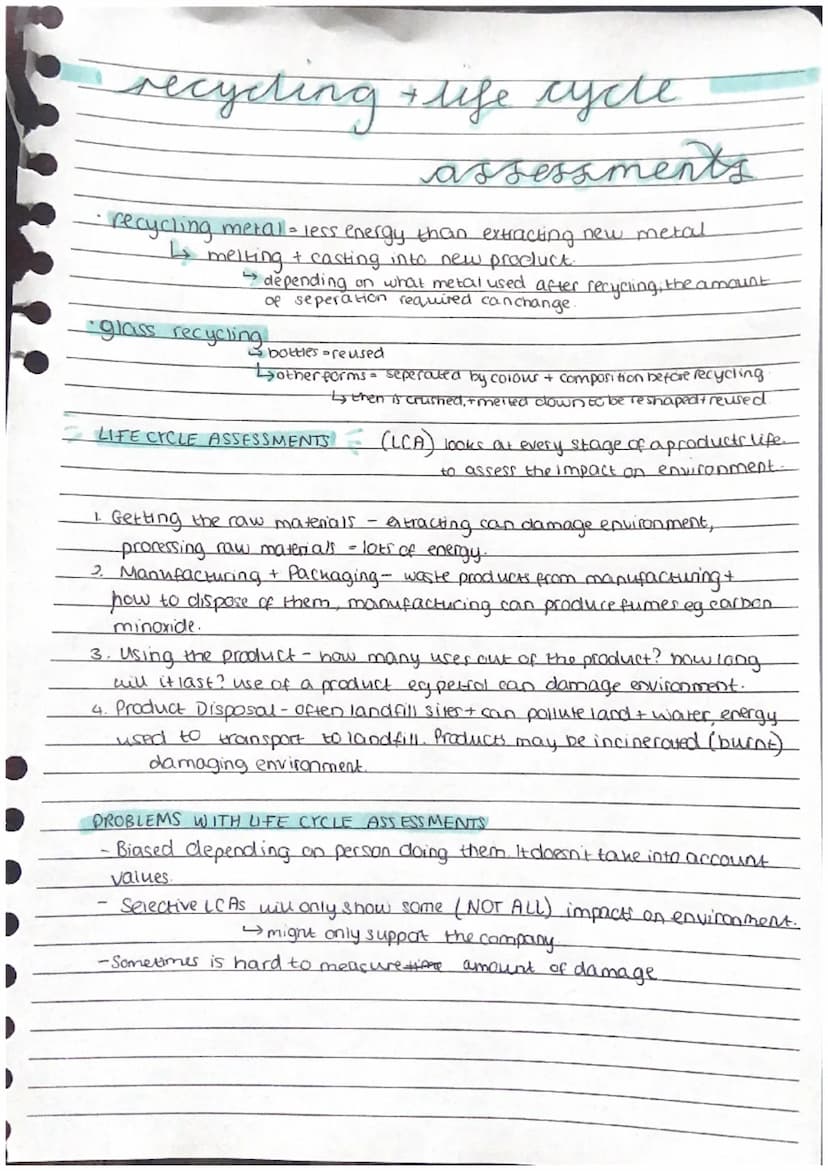 recycling + life cycle
assessments
· recycling metal = less energy than extracting new metal
↳ melting + casting into new product.
↳ depending on what metal used after recycling, the amount
of seperation required can change.
· glass recycling
↳ bottles = reused
↳ other forms = seperated by colour + composition before recycling.
↳ then is crushed, + melted down to be reshaped + reused
LIFE CYCLE ASSESSMENTS (LCA) looks at every stage of a products life.
to assess the impact on environment.
1. Getting the raw materials - extracting can damage environment,
processing raw materials = lots of energy.
2. Manufacturing + Packaging - waste products from manufacturing +
how to dispose of them, manufacturing can produce fumes eg carbon
minoxide.
3. Using the product - how many uses out of the product? how long
will it last? use of a product eg petrol can damage environment.
4. Product Disposal - often landfill sites + can pollute land + water, energy
used to transport to landfill. Products may be incinerated (burnt)
damaging environment.
PROBLEMS WITH LIFE CYCLE ASSESSMENTS
- Biased depending on person doing them. It doesn't take into account
values.
- Selective LCAs will only show some (NOT ALL) impacts on environment.
↳ might only support the company
- Sometimes is hard to measure amount of damage